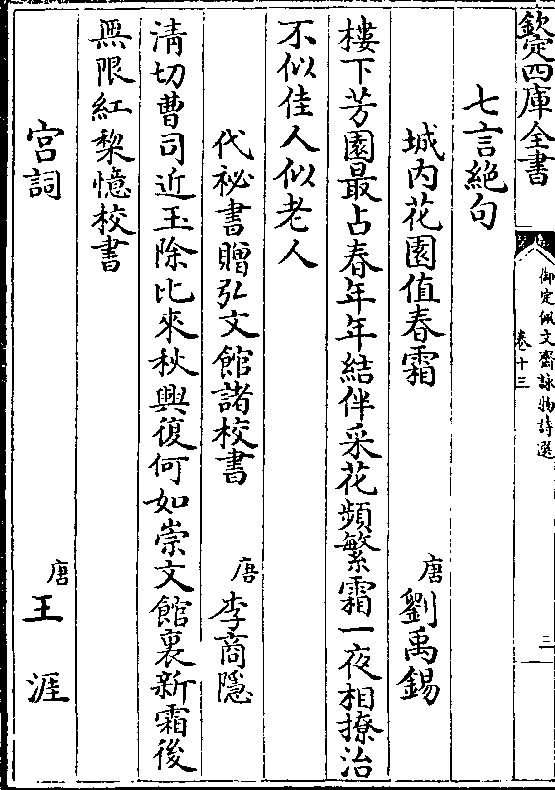 欽定四庫全書
御定佩文齋詠物詩選
卷十三
三
七言絶句
城内花園值春霜
唐
劉禹錫
樓下芳園最占春年年結伴采花頻繁霜一夜相撩治
不似佳人似老人
代祕書贈弘文館諸校書
唐
李商隱
清切曹司近玉除比來秋興復何如崇文館裏新霜後
無限紅棃憶校書
宫詞
唐
王涯